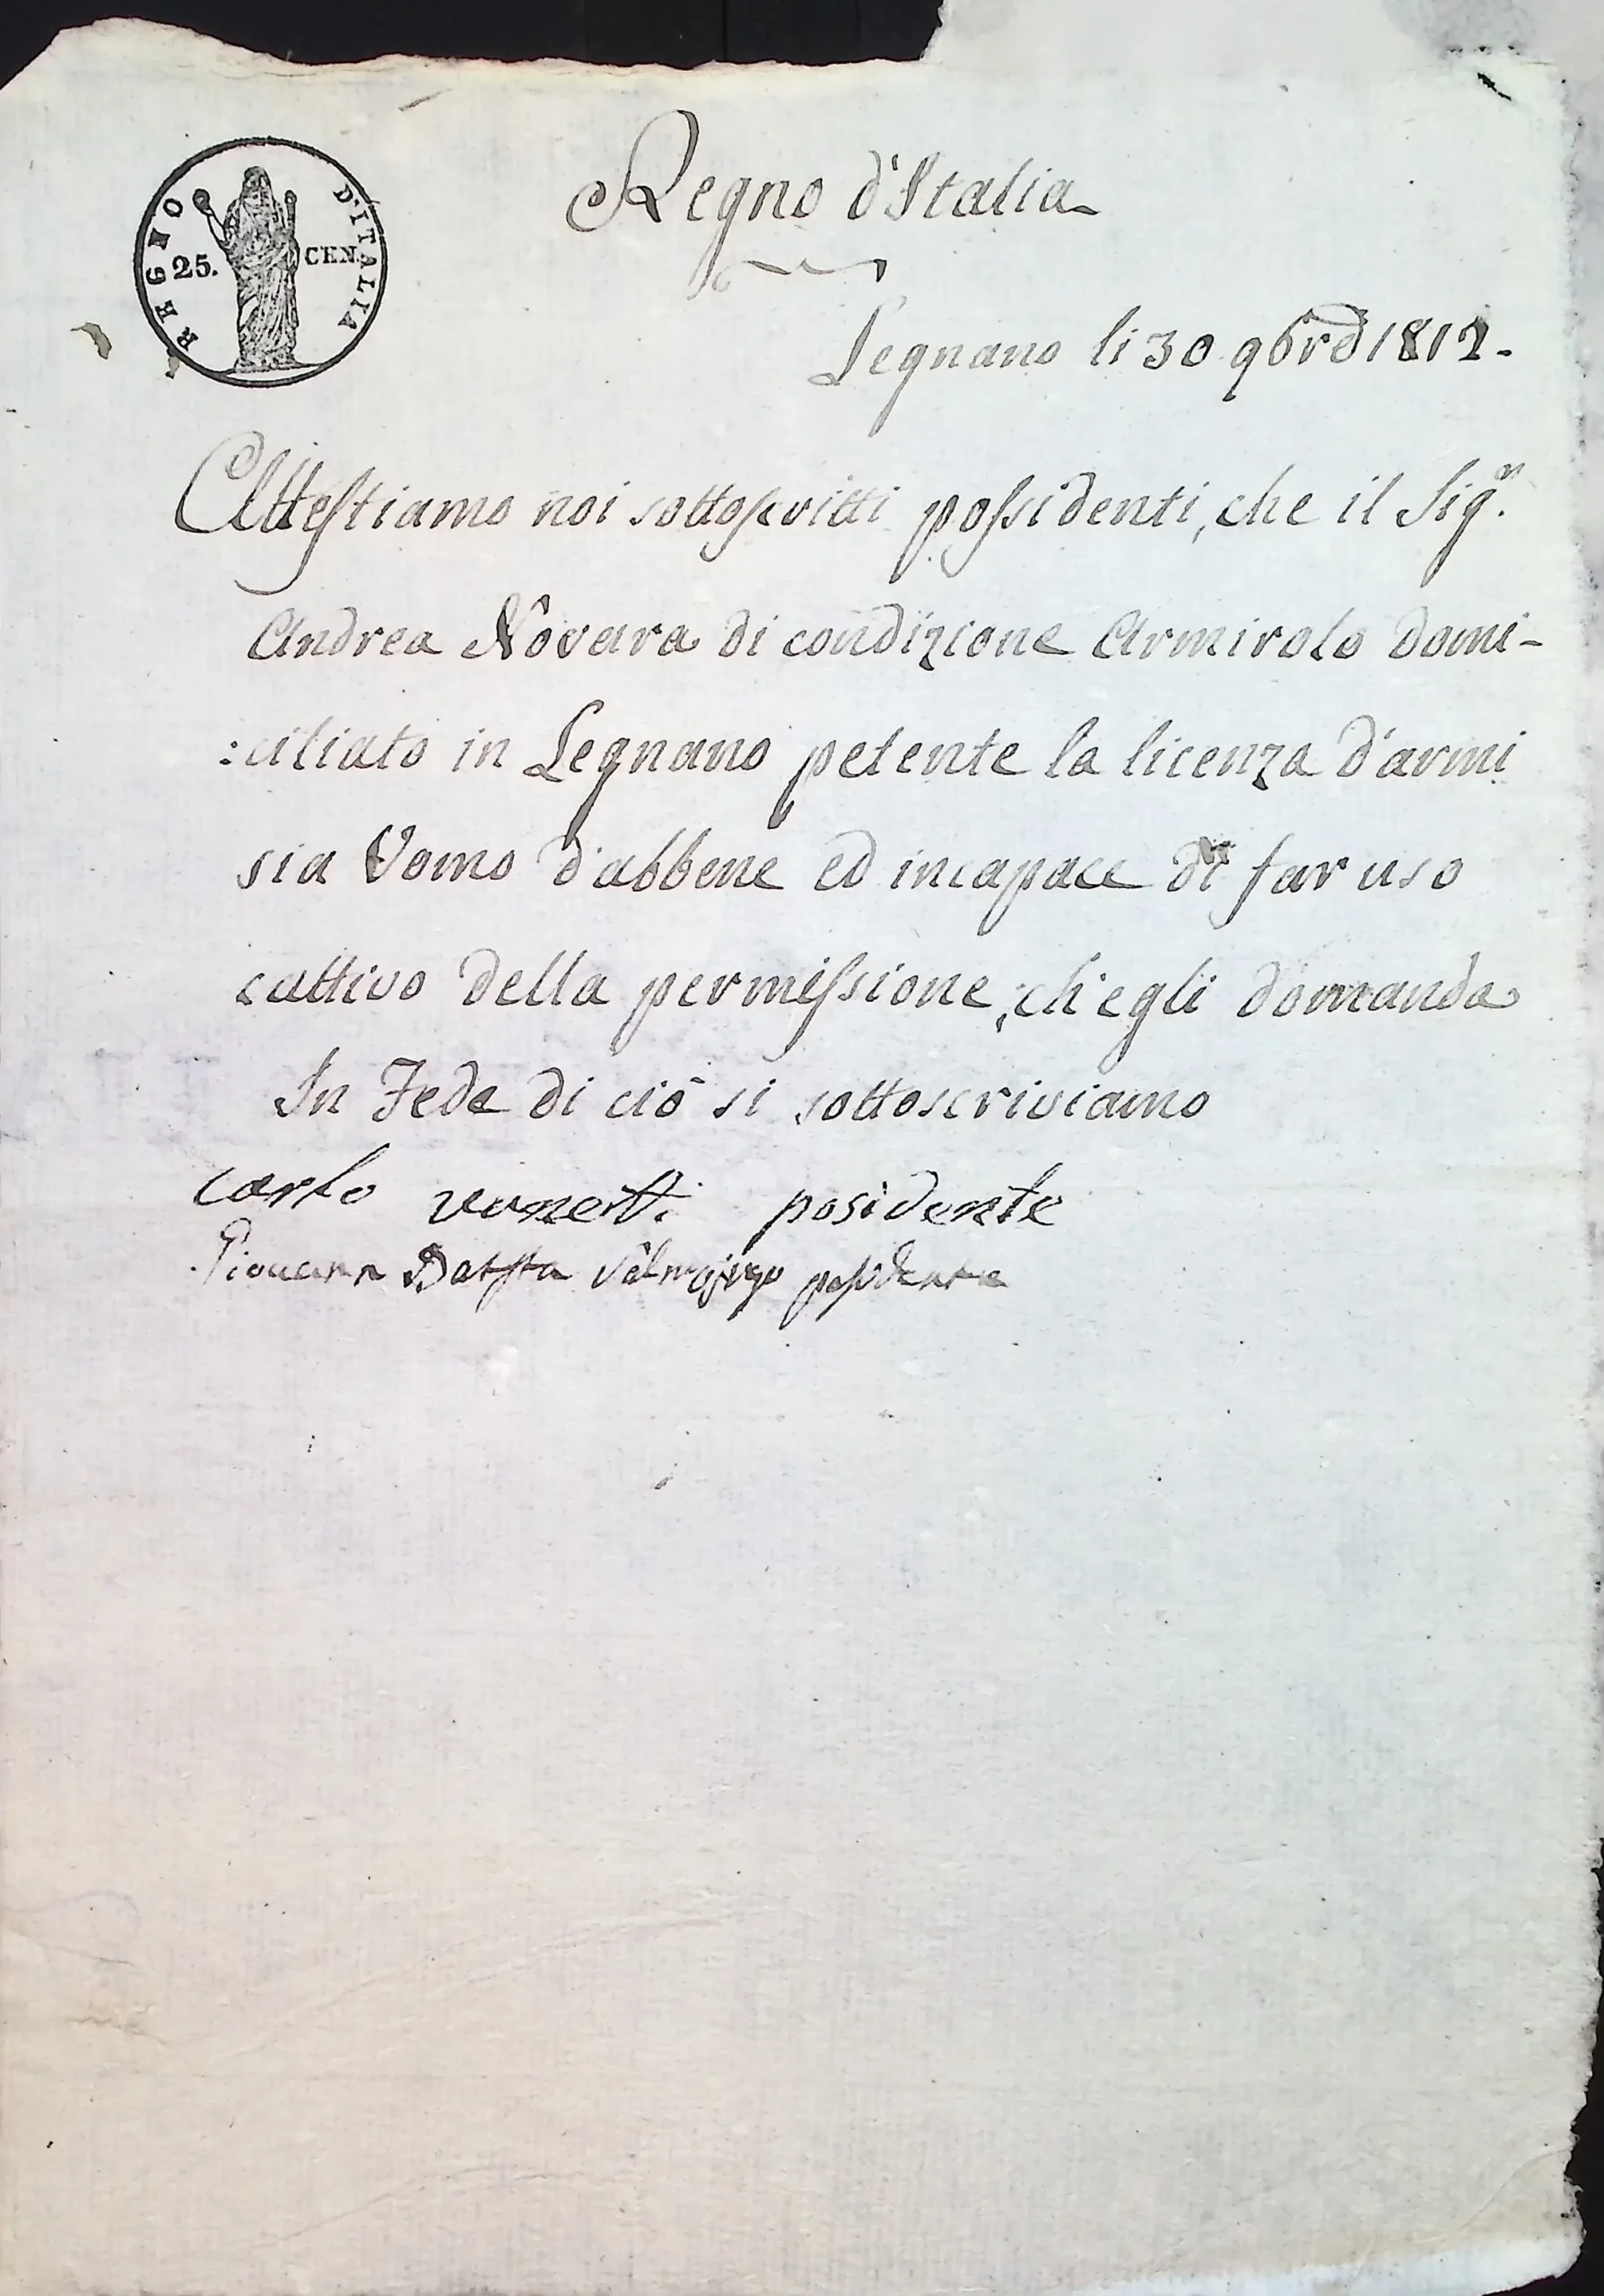 Regno d'Italia
REGNO D'ITALIA
25. CEN.
Legnano li 30 9brē 1812.
Attestiamo noi sottoscritti possidenti, che il Sigr.
Andrea Novara di condizione Armirolo domi-
:ciliato in Legnano petente la licenza d'armi
sia Uomo d'abbene ed incapace di far uso
cattivo della permissione, ch'egli domanda
In Fede di ciò si sottoscriviamo
Carlo posidente
Giovann Batsta possidente